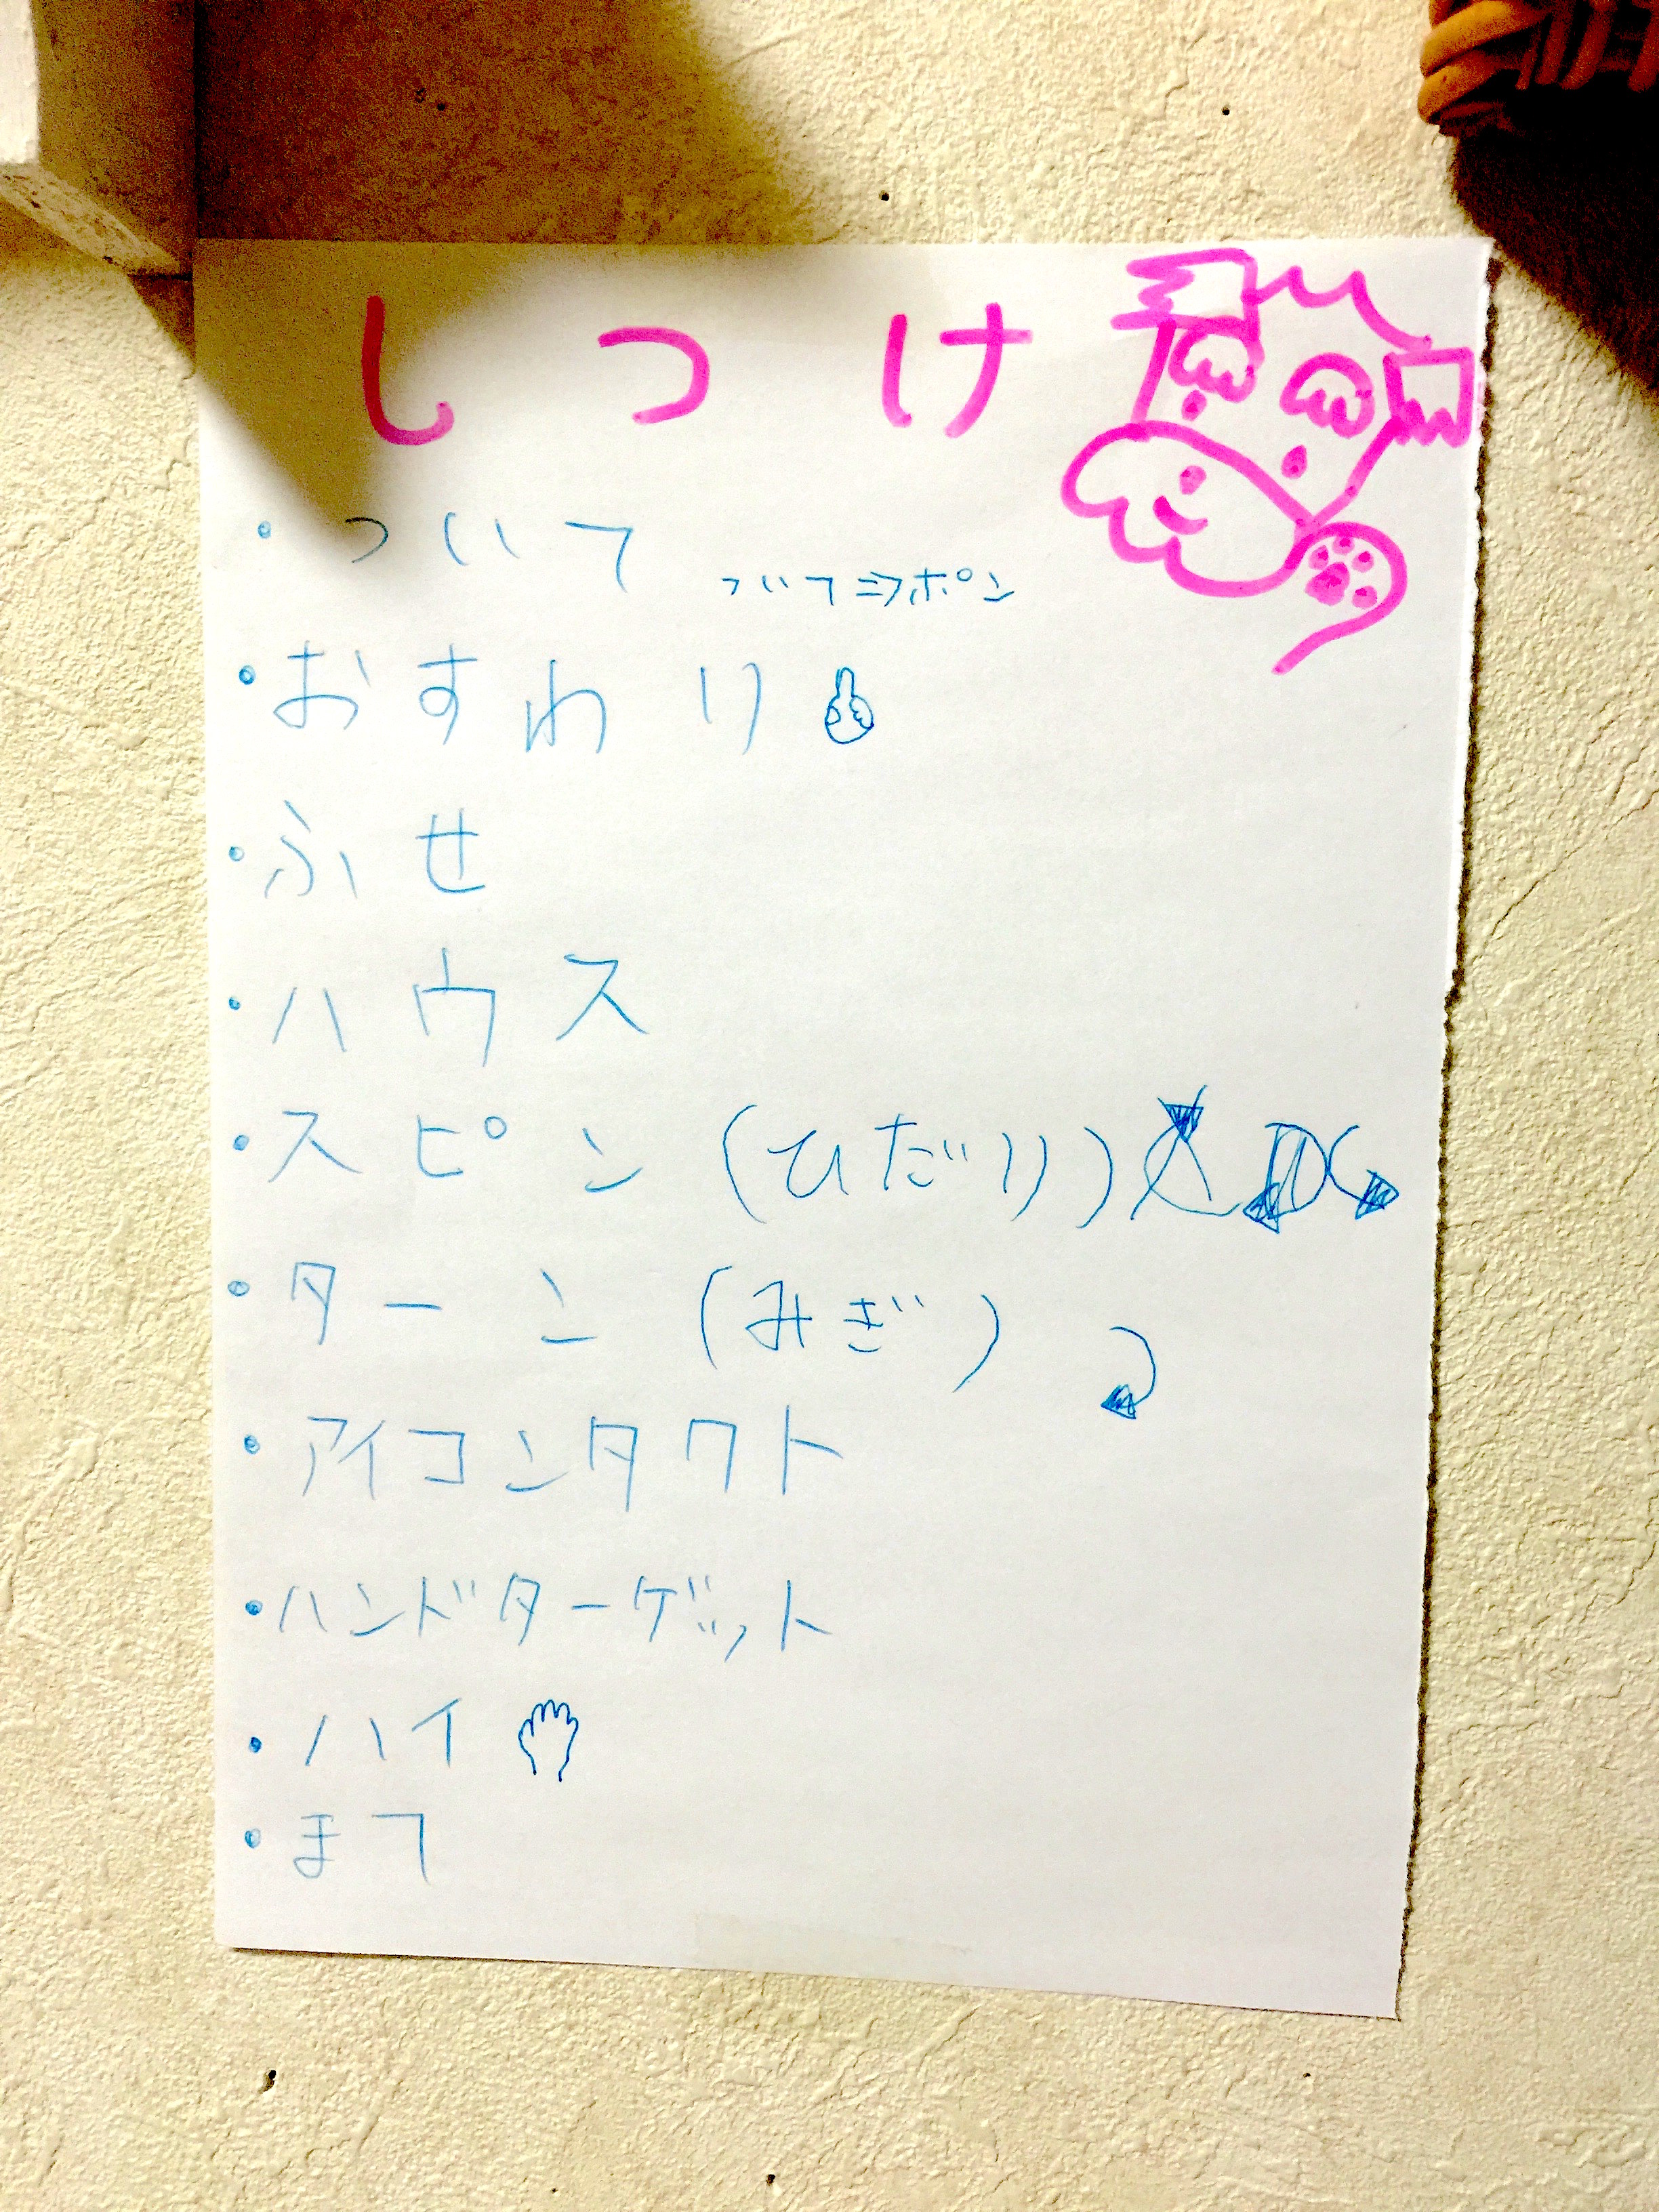 しつけ
・ついて
ついて⇒ポン
・おすわり
・ふせ
・ハウス
・スピン(ひだり)
・ターン(みぎ)
・アイコンタクト
・ハンドターゲット
・ハイ
・まて